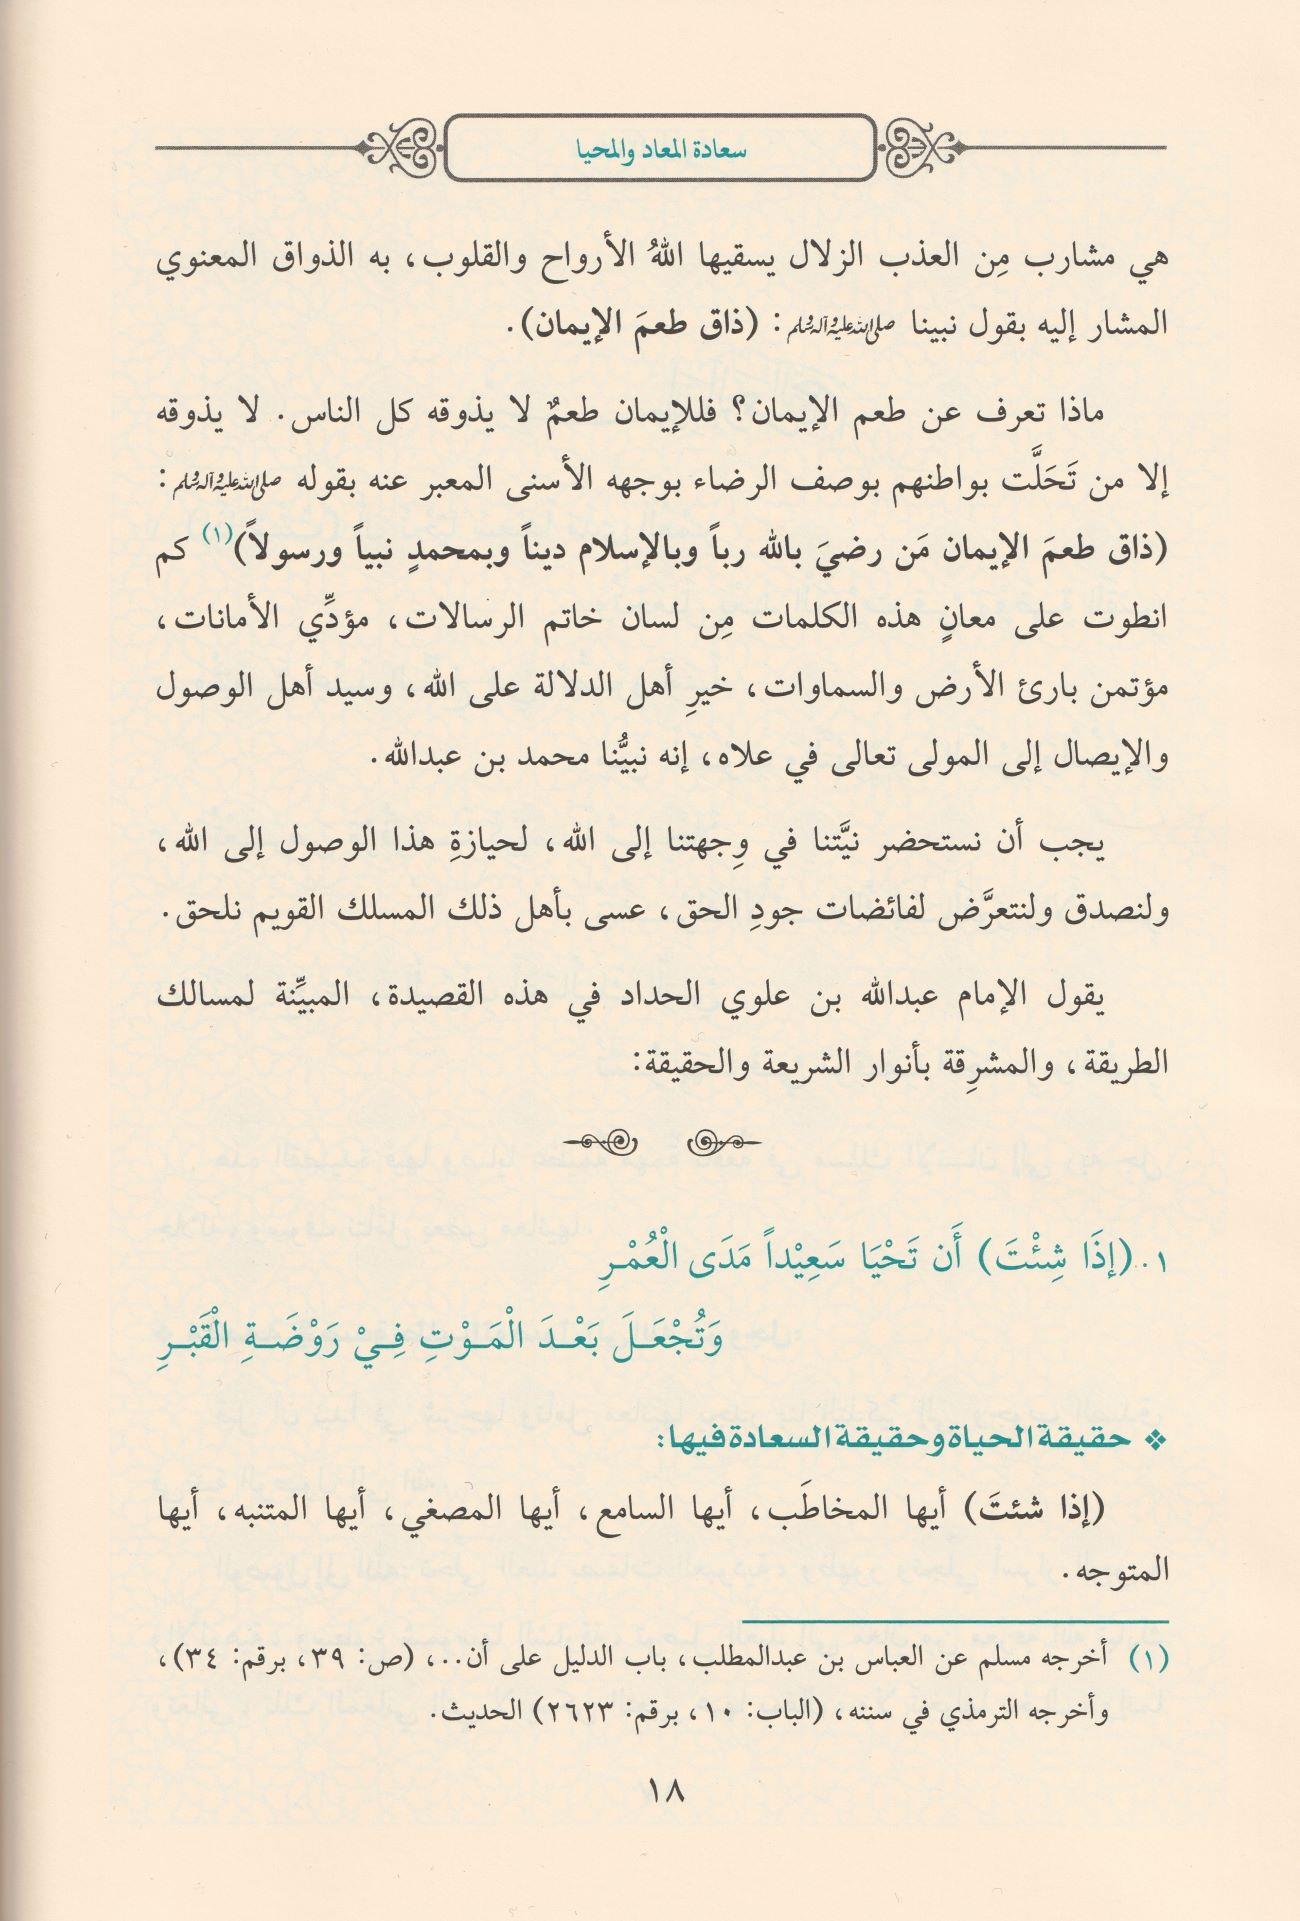 سعادة المعاد والمحيا
هي مشارب مِن العذب الزلال يسقيها اللهُ الأرواح والقلوب، به الذواق المعنوي
المشار إليه بقول نبينا صلى الله عليه وآله وسلم: (ذاق طعمَ الإيمان).
ماذا تعرف عن طعم الإيمان؟ فللإيمان طعمٌ لا يذوقه كل الناس. لا يذوقه
إلا من تَحَلَّت بواطنهم بوصف الرضاء بوجهه الأسنى المعبر عنه بقوله صلى الله عليه وآله وسلم:
(ذاق طعمَ الإيمان مَن رضيَ بالله رباً وبالإسلام ديناً وبمحمدٍ نبياً ورسولاً)(١) كم
انطوت على معانٍ هذه الكلمات مِن لسان خاتم الرسالات، مؤدِّي الأمانات،
مؤتمن بارئ الأرض والسماوات، خيرِ أهل الدلالة على الله، وسيد أهل الوصول
والإيصال إلى المولى تعالى في علاه، إنه نبيُّنا محمد بن عبدالله.
يجب أن نستحضر نيَّتنا في وِجهتنا إلى الله، لحيازةِ هذا الوصول إلى الله،
ولنصدق ولنتعرَّض لفائضات جودِ الحق، عسى بأهل ذلك المسلك القويم نلحق.
يقول الإمام عبدالله بن علوي الحداد في هذه القصيدة، المبيِّنة لمسالك
الطريقة، والمشرِقة بأنوار الشريعة والحقيقة:
١. (إذَا شِئْتَ) أَن تَحْيَا سَعِيْداً مَدَى الْعُمْرِ
وَتُجْعَلَ بَعْدَ الْمَوْتِ فِيْ رَوْضَةِ الْقَبْرِ
❖ حقيقة الحياة وحقيقة السعادة فيها:
(إذا شئتَ) أيها المخاطَب، أيها السامع، أيها المصغي، أيها المتنبه، أيها
المتوجه.
(١) أخرجه مسلم عن العباس بن عبدالمطلب، باب الدليل على أن..، (ص: ٣٩، برقم: ٣٤)،
وأخرجه الترمذي في سننه، (الباب: ١٠، برقم: ٢٦٢٣) الحديث.
١٨